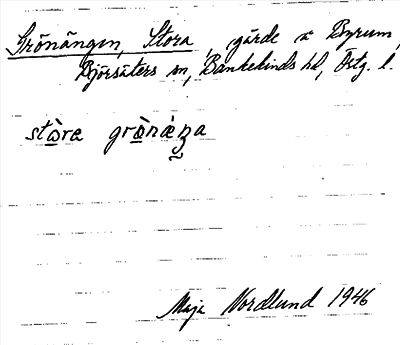 Grönängen, Stora, gärde å Byrum,
Björsäters sn, Bankekinds hd, Östg. l.
stòra grònáŋa
Maja Nordlund 1946